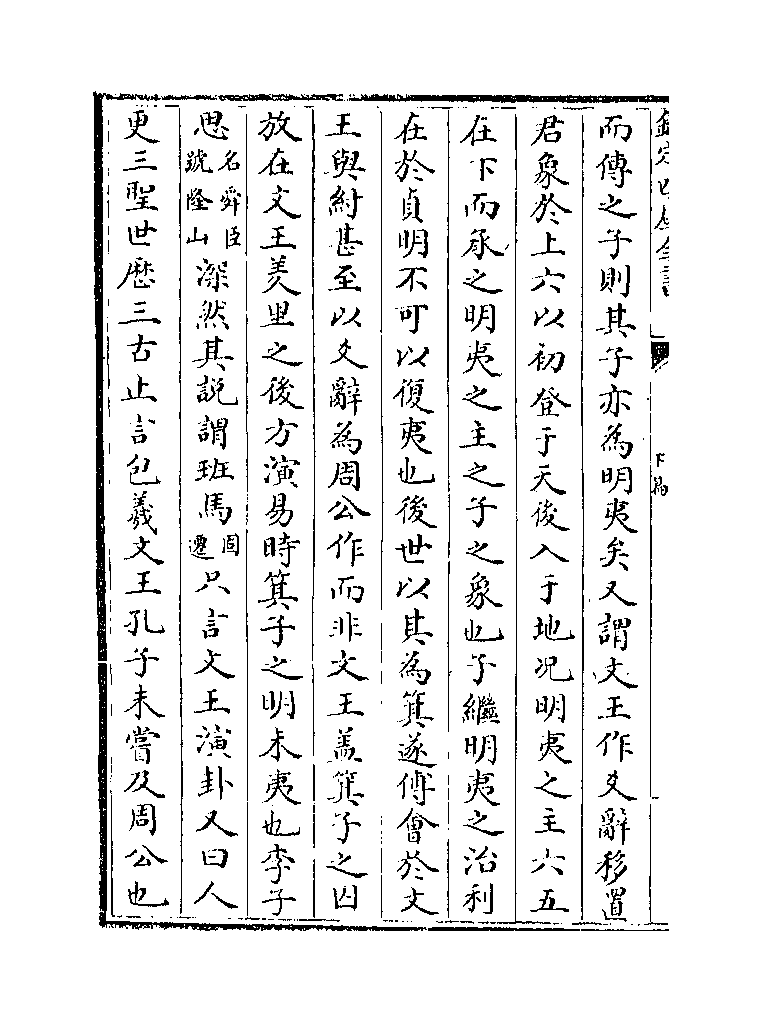 而傳之子則其子亦為明夷矣又謂文王作爻辭移置
君象於上六以初登于天後入于地况明夷之主六五
在下而承之明夷之主之子之象也子繼明夷之治利
在於貞明不可以復夷也後世以其為箕遂傅會於文
王與紂甚至以爻辭為周公作而非文王葢箕子之囚
放在文王羑里之後方演易時箕子之明未夷也李子
思名舜臣號隆山深然其説謂班馬固遷只言文王演卦又曰人
更三聖世歴三古止言包羲文王孔子未嘗及周公也